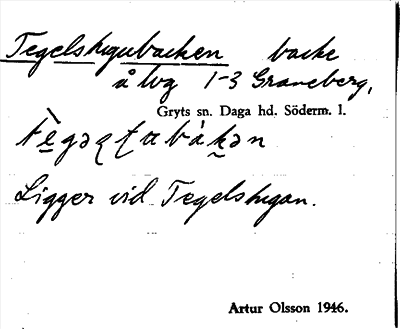 Tegelstugubacken backe
å lvg 1-3 Graneberg,
Gryts sn. Daga hd. Söderm. l.
Ligger vid Tegelstugan.
Artur Olsson 1946.